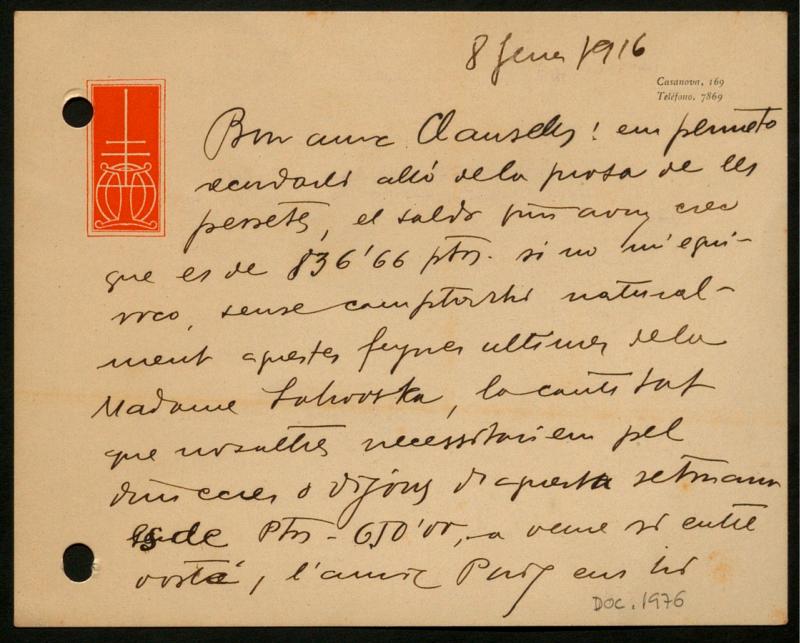 8 Gener 1916
Casanova, 169
Teléfono, 7869
Bon amic Clausells! em permeto
recordarli allò de la prosa de les
pessetes, el saldo fins avuy crec
que es de 836'66 ptas. si no m'equi-
voco, sense comptarshi natural-
ment aquestes feynes ultimes de la
Madame, la cantitat
que nosaltres necessitariem pel
dimecres o dijous d'aquesta setmana
es de Ptas - 650'00,- a veure si entre
vostè, l'amic Puig ens hi
DOC. 1976